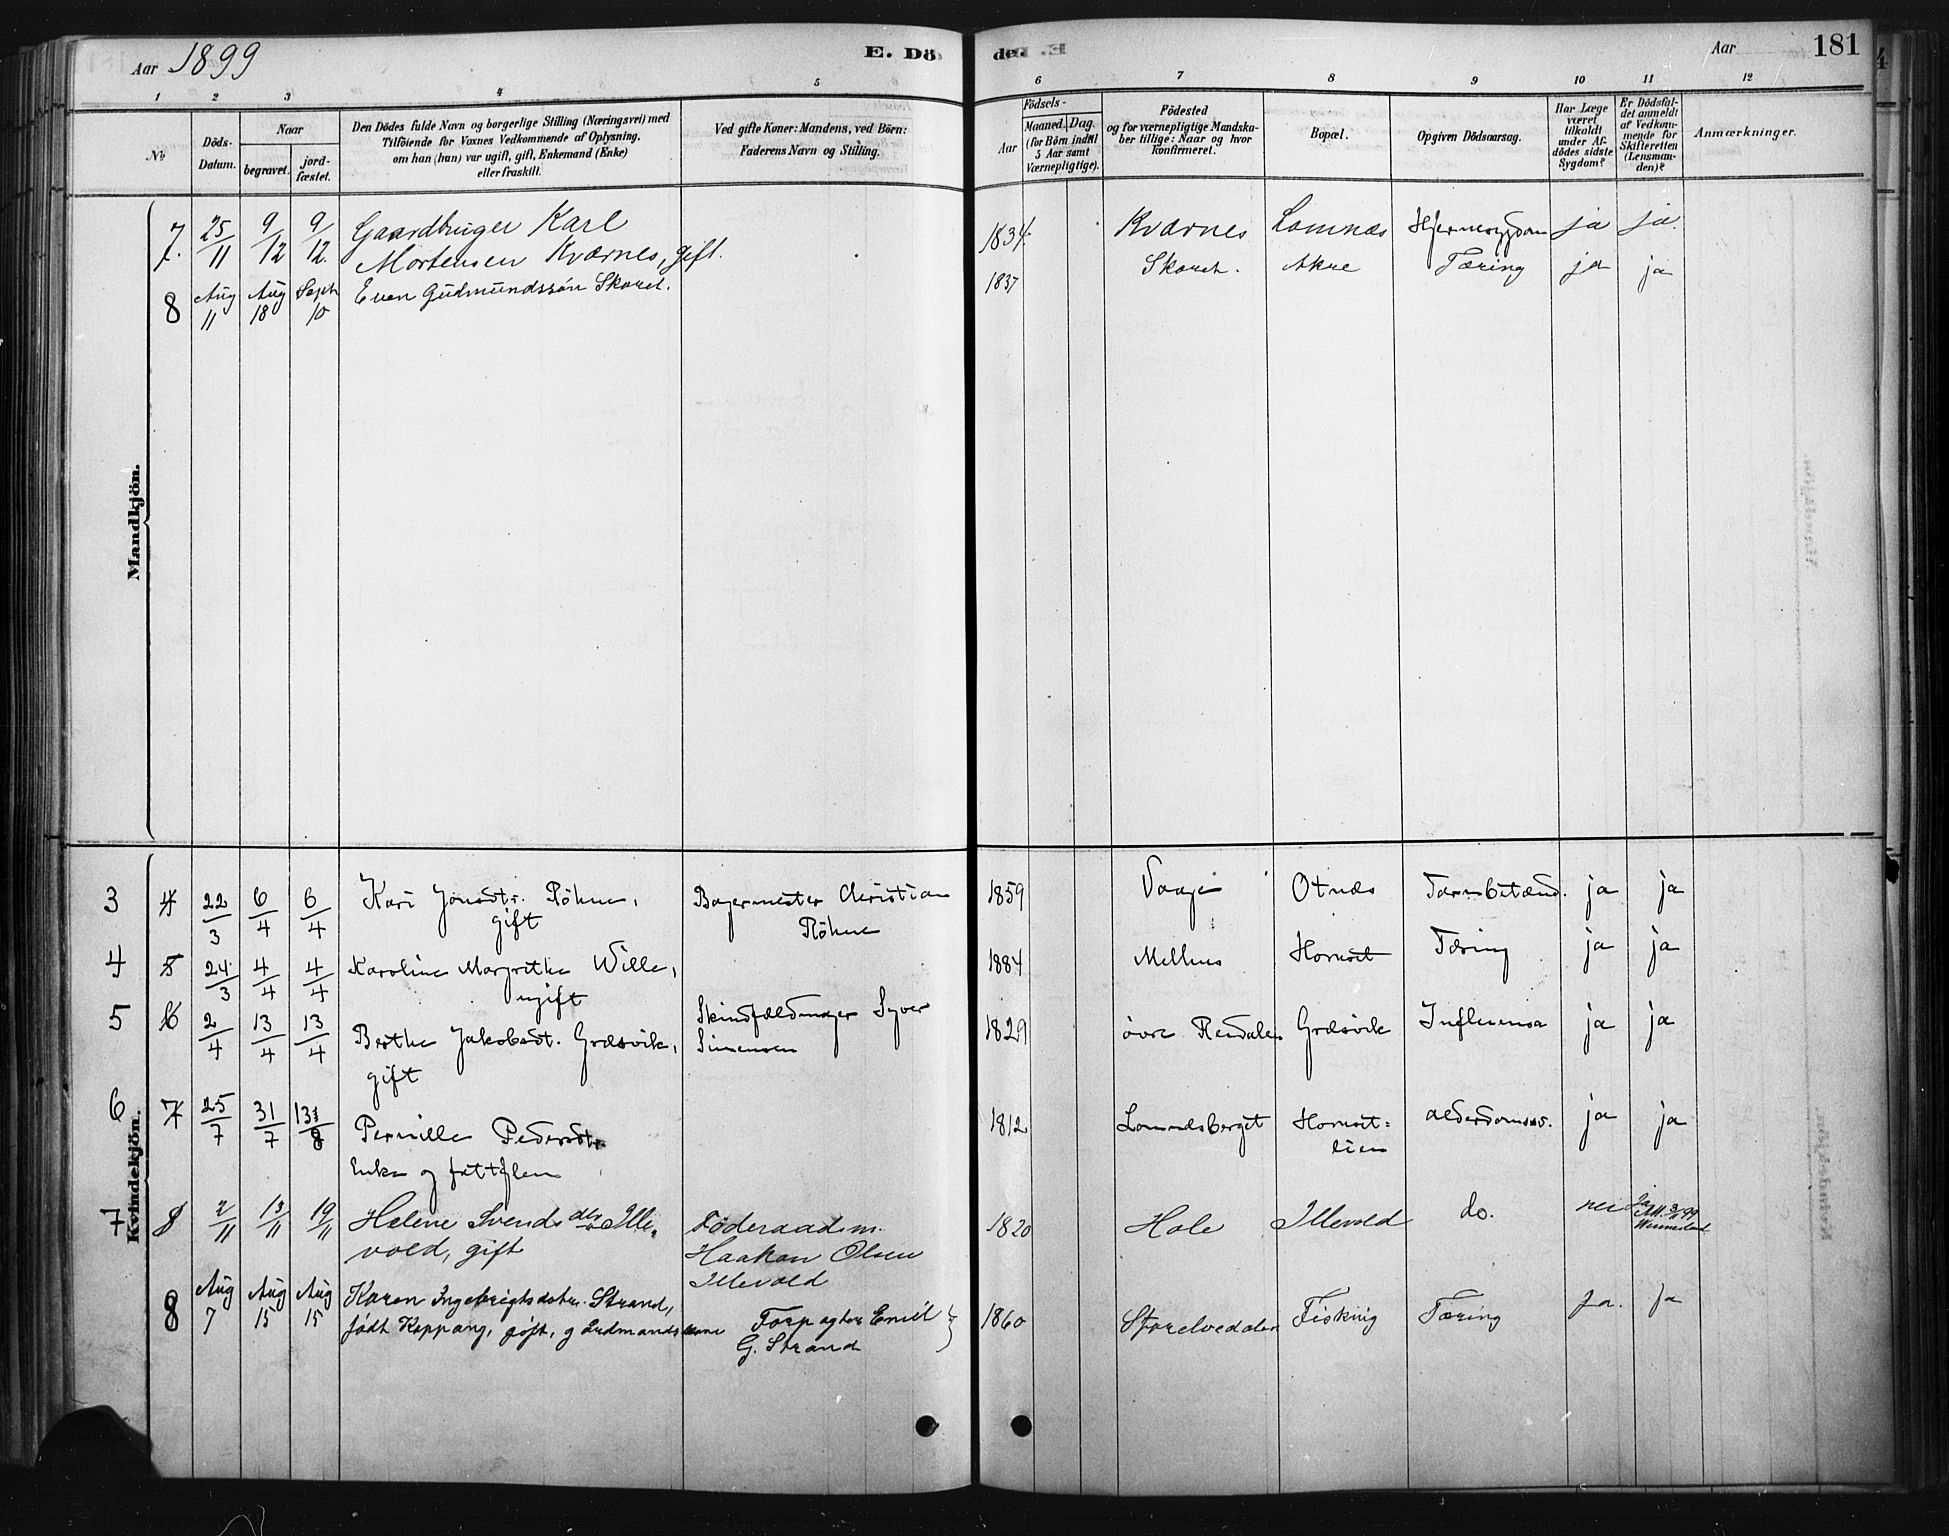 Aar 1899
E. Dö
de.
Aar
181
1 2 3 4 5 6 7 8 9 10 11 12
No
Döds-
Datum.
Naar
begravet.
jord-
fæstet.
Den Dödes fulde Navn og borgerlige Stilling (Næringsvei) med
Tilföiende for Voxnes Vedkommende af Oplysning,
om han (hun) var ugift, gift, Enkemand (Enke)
eller fraskilt.
Ved gifte Koner: Mandens, ved Börn:
Faderens Navn og Stilling.
Födsels-
Aar
Maaned. Dag.
(for Börn indtil
5 Aar samt
Værnepligtige).
Födested
og for værnepligtige Mandska-
ber tillige: Naar og hvor
konfirmeret.
Bopæl.
Opgiven Dödsaarsag.
Har Læge
været
tilkaldt
under Af-
dödes sidste
Sygdom?
Er Dödsfal-
det anmeldt
af Vedkom-
mende for
Skifteretten
(Lensman-
den)?
Anmærkninger.
Mandkjön.
7. 25/11 9/12 9/12. Gaardbruger Karl
Mortensen Kværnes, gift.
1834 Kværnes Lomnæs Hjernesygdom ja ja.
8 Aug 11 Aug 18 Sept 10 Even Gudmundssøn Skaret.
1837 Skaret. Akre Tæring ja ja
Kvindekjön.
3 4 22/3 6/4 6/4 Kari Jonsdtr. Röhne,
gift
Bagermester Christian
Röhne
1859 Vaage Otnæs Tarmbetænd. ja ja
4 5 24/3 4/4 4/4 Karoline Margrethe Wille,
ugift
1884 Melhus Hornset Tæring ja ja
5 6 2/4 13/4 13/4 Berthe Jakobsdt. Græsvik,
gift
Skindfældmager Syver
Simensen
1829 övre Rendalen Græsvik Influensa ja ja
6 7 25/7 31/7 13/8 Pernille Pedersdtr
Enke og fattiglem
1812 Lomnæsberget Hornset=
lien
alderdomssv. ja ja
7 8 2/11 13/11 19/11 Helene Svends dtr Ille-
vold, gift
Föderaadsm.
Haakon Olsen
Illevold
1820 Hole Illevold do. nei Ja
8 Aug 7 Aug 15 Aug 15 Karen Ingebrigtsdatter Strand,
født Koppang, gift, Gaardmandskone
Forpagter Emil
G. Strand
1860 Storelvedalen Fiskvig Tæring ja. ja